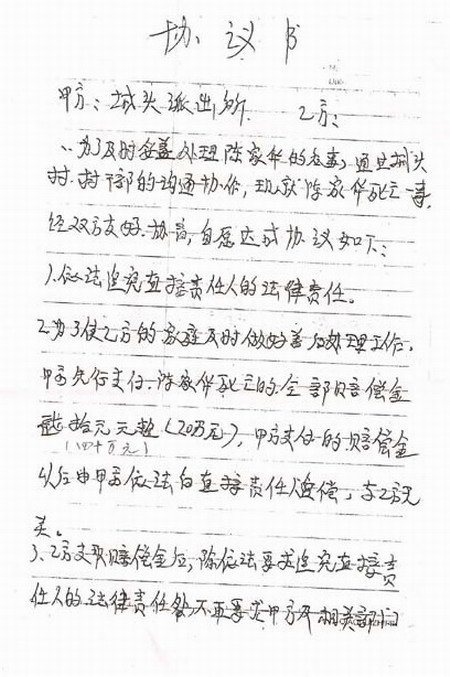 协议书
甲方：城头派出所 乙方：
为了及时妥善处理陈家华的后事，通过城头
村村干部的沟通协作，现就陈家华死亡一事，
经双方友好协商，自愿达成协议如下：
1、依法追究直接责任人的法律责任。
2、为了使乙方的家庭及时做好善后处理工作，
甲方先行支付陈家华死亡的全部赔偿金
拾元元整（20万元），甲方支付的赔偿金
（四十万元）
以后由甲方依法向直接责任人追偿，与乙方无
关。
3、乙方支取赔偿金后，除依法要求追究直接责
任人的法律责任外，不再要求甲方及相关部门